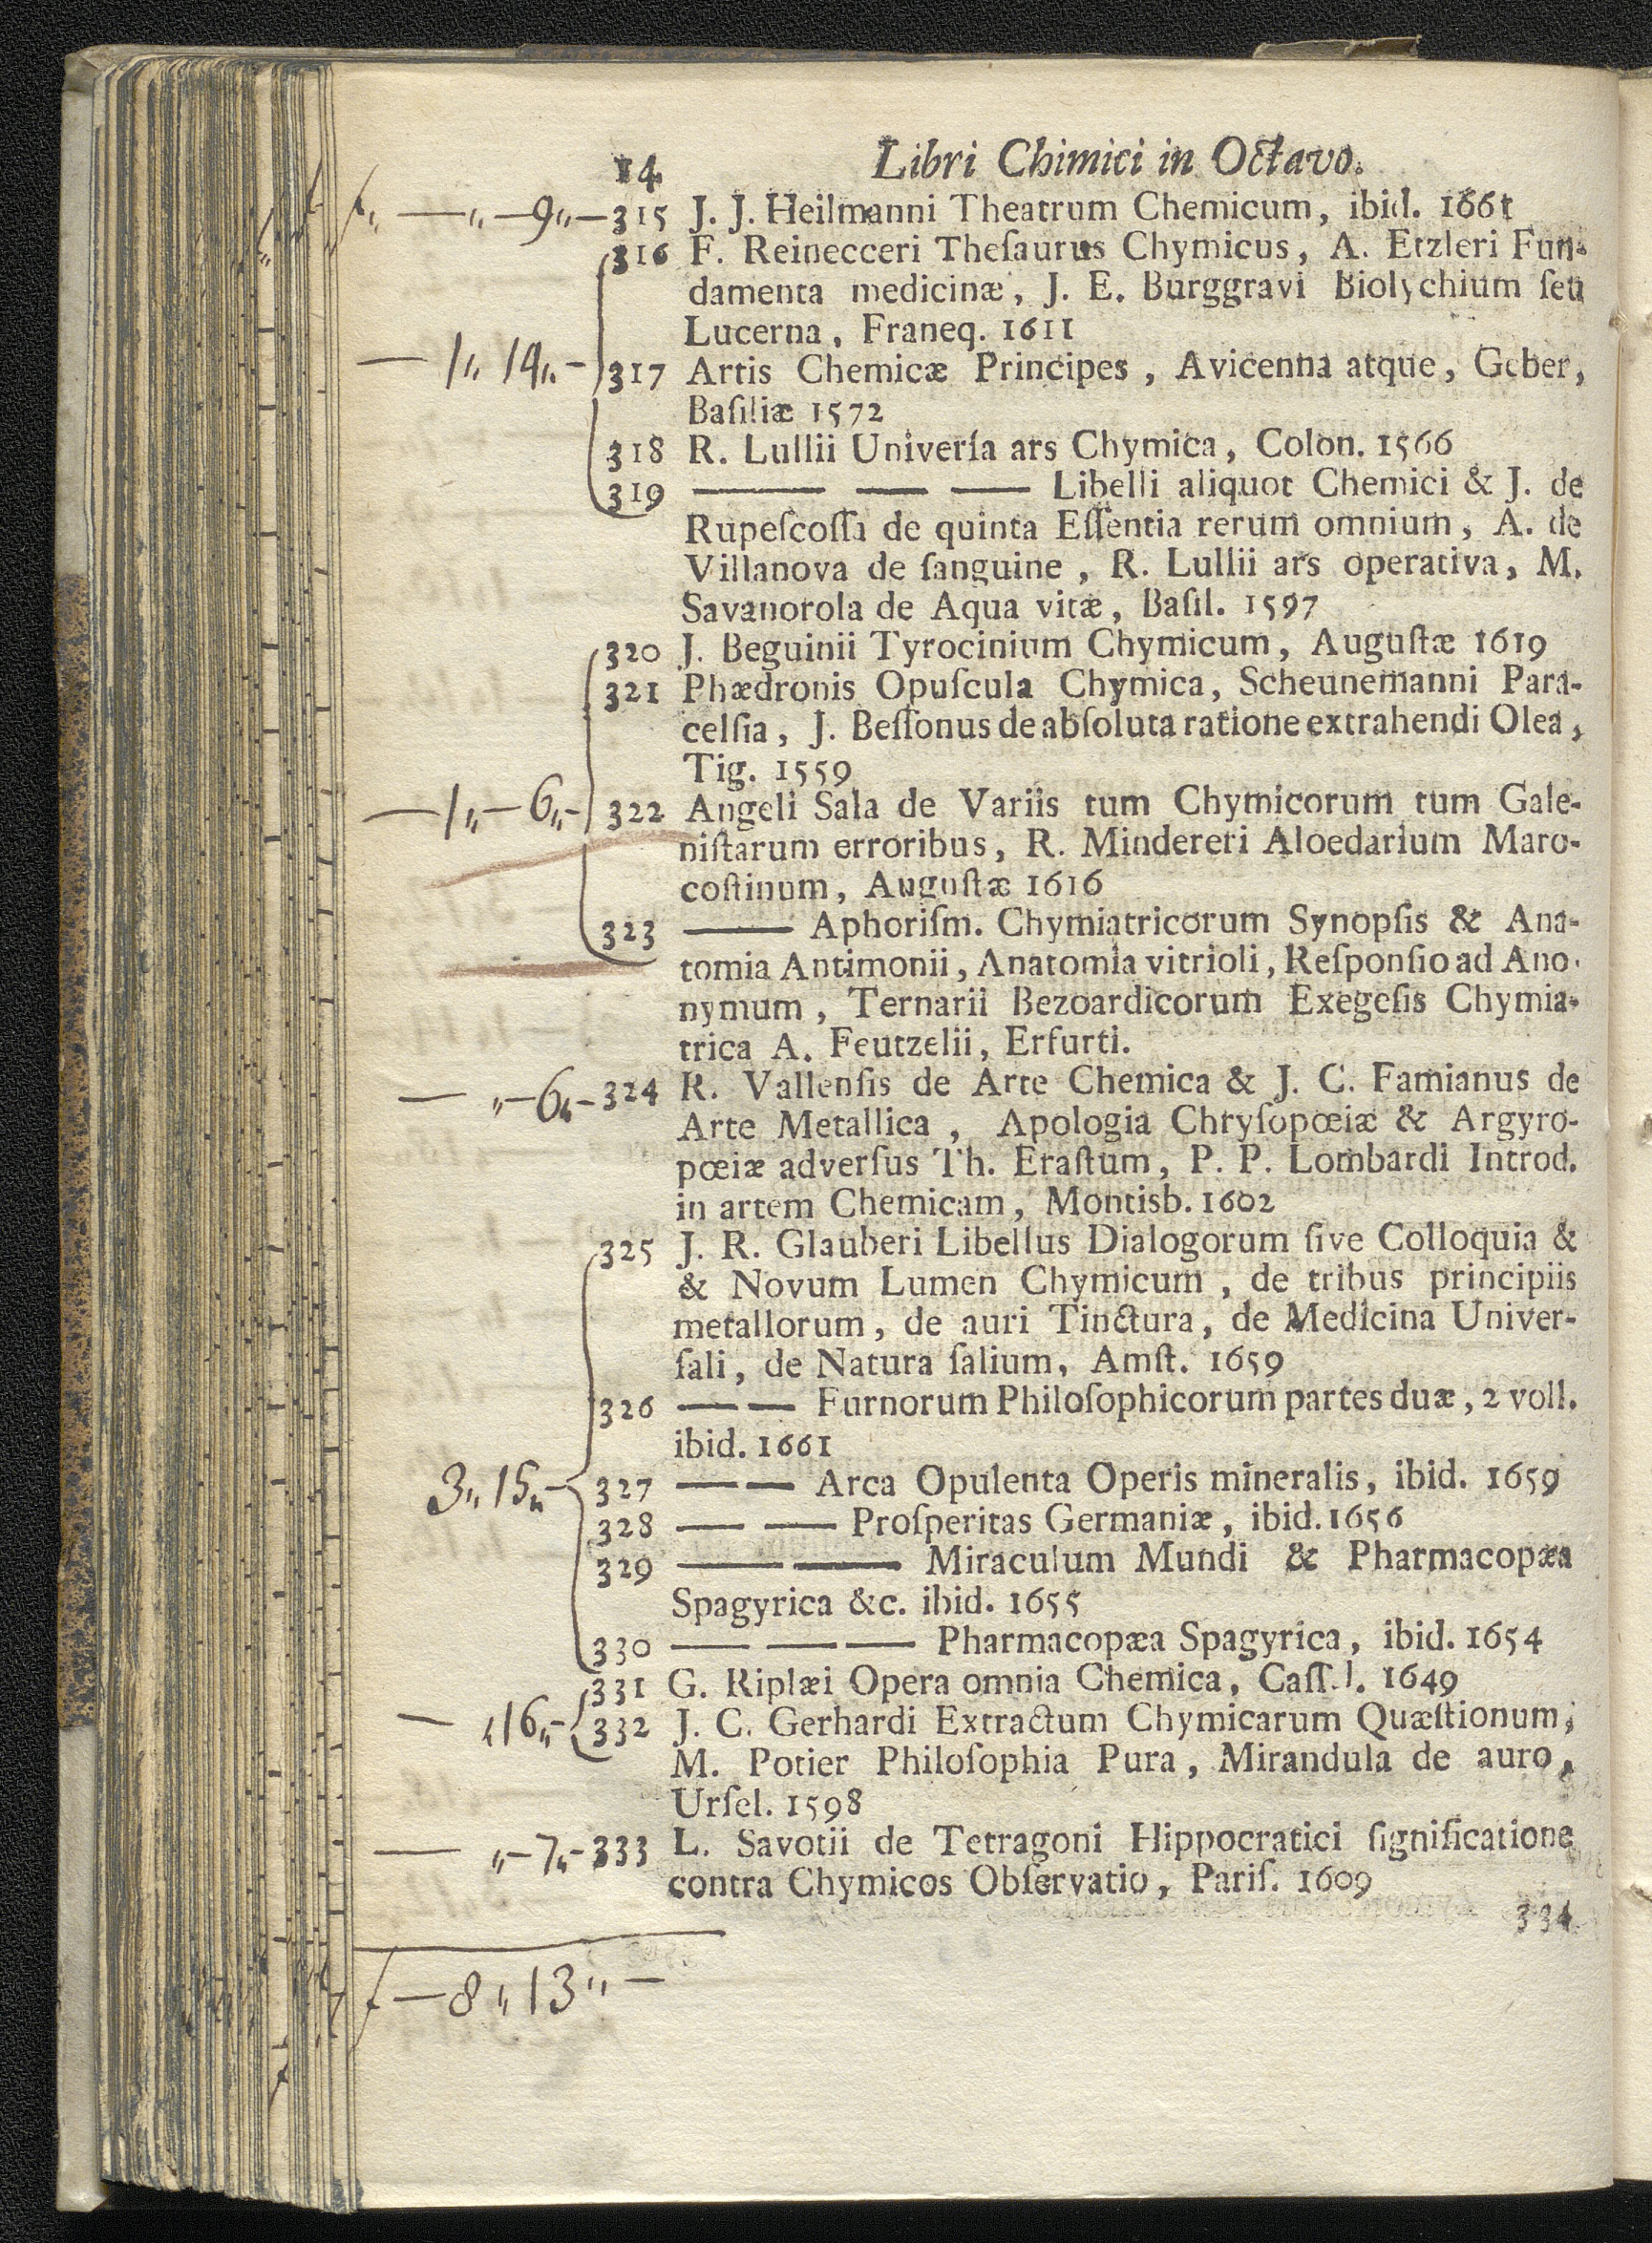 14
Libri Chimici in Octavo.
f„ — „ — 9„ — 315 J. J. Heilmanni Theatrum Chemicum, ibid. 1661
316 F. Reinecceri Theſaurus Chymicus, A. Etzleri Fun-
damenta medicinæ, J. E. Burggravi Biolychium ſeu
Lucerna, Franeq. 1611
— 1„ 14„ - 317 Artis Chemicæ Principes, Avicenna atque, Geber,
Baſiliæ 1572
318 R. Lullii Univerſa ars Chymica, Colon. 1566
319 — — — Libelli aliquot Chemici & J. de
Rupeſcoſſa de quinta Eſſentia rerum omnium, A. de
Villanova de ſanguine, R. Lullii ars operativa, M.
Savanorola de Aqua vitæ, Baſil. 1597
320 J. Beguinii Tyrocinium Chymicum, Auguſtæ 1619
321 Phædronis Opuſcula Chymica, Scheunemanni Para-
celſia, J. Beſſonus de abſoluta ratione extrahendi Olea,
Tig. 1559
— 1„ — 6„ - 322 Angeli Sala de Variis tum Chymicorum tum Gale-
niſtarum erroribus, R. Mindereri Aloedarium Maro-
coſtinum, Auguſtæ 1616
323 — Aphoriſm. Chymiatricorum Synopſis & Ana-
tomia Antimonii, Anatomia vitrioli, Reſponſio ad Ano-
nymum, Ternarii Bezoardicorum Exegeſis Chymia-
trica A. Feutzelii, Erfurti.
— „ — 6„ - 324 R. Vallenſis de Arte Chemica & J. C. Famianus de
Arte Metallica, Apologia Chryſopœiæ & Argyro-
pœiæ adverſus Th. Eraſtum, P. P. Lombardi Introd.
in artem Chemicam, Montisb. 1602
325 J. R. Glauberi Libellus Dialogorum ſive Colloquia &
& Novum Lumen Chymicum, de tribus principiis
metallorum, de auri Tinctura, de Medicina Univer-
ſali, de Natura ſalium, Amſt. 1659
326 — — Furnorum Philoſophicorum partes duæ, 2 voll.
ibid. 1661
3„ 15„ - 327 — — Arca Opulenta Operis mineralis, ibid. 1659
328 — — Proſperitas Germaniæ, ibid. 1656
329 — — Miraculum Mundi & Pharmacopæa
Spagyrica &c. ibid. 1655
330 — — — Pharmacopæa Spagyrica, ibid. 1654
331 G. Riplæi Opera omnia Chemica, Caſſ.l. 1649
— „ 16„ - 332 J. C. Gerhardi Extractum Chymicarum Quæſtionum,
M. Potier Philoſophia Pura, Mirandula de auro,
Urſel. 1598
— „ — 7„ - 333 L. Savotii de Tetragoni Hippocratici ſignificatione
contra Chymicos Obſervatio, Pariſ. 1609
334
f — 8 „ 13 „ —